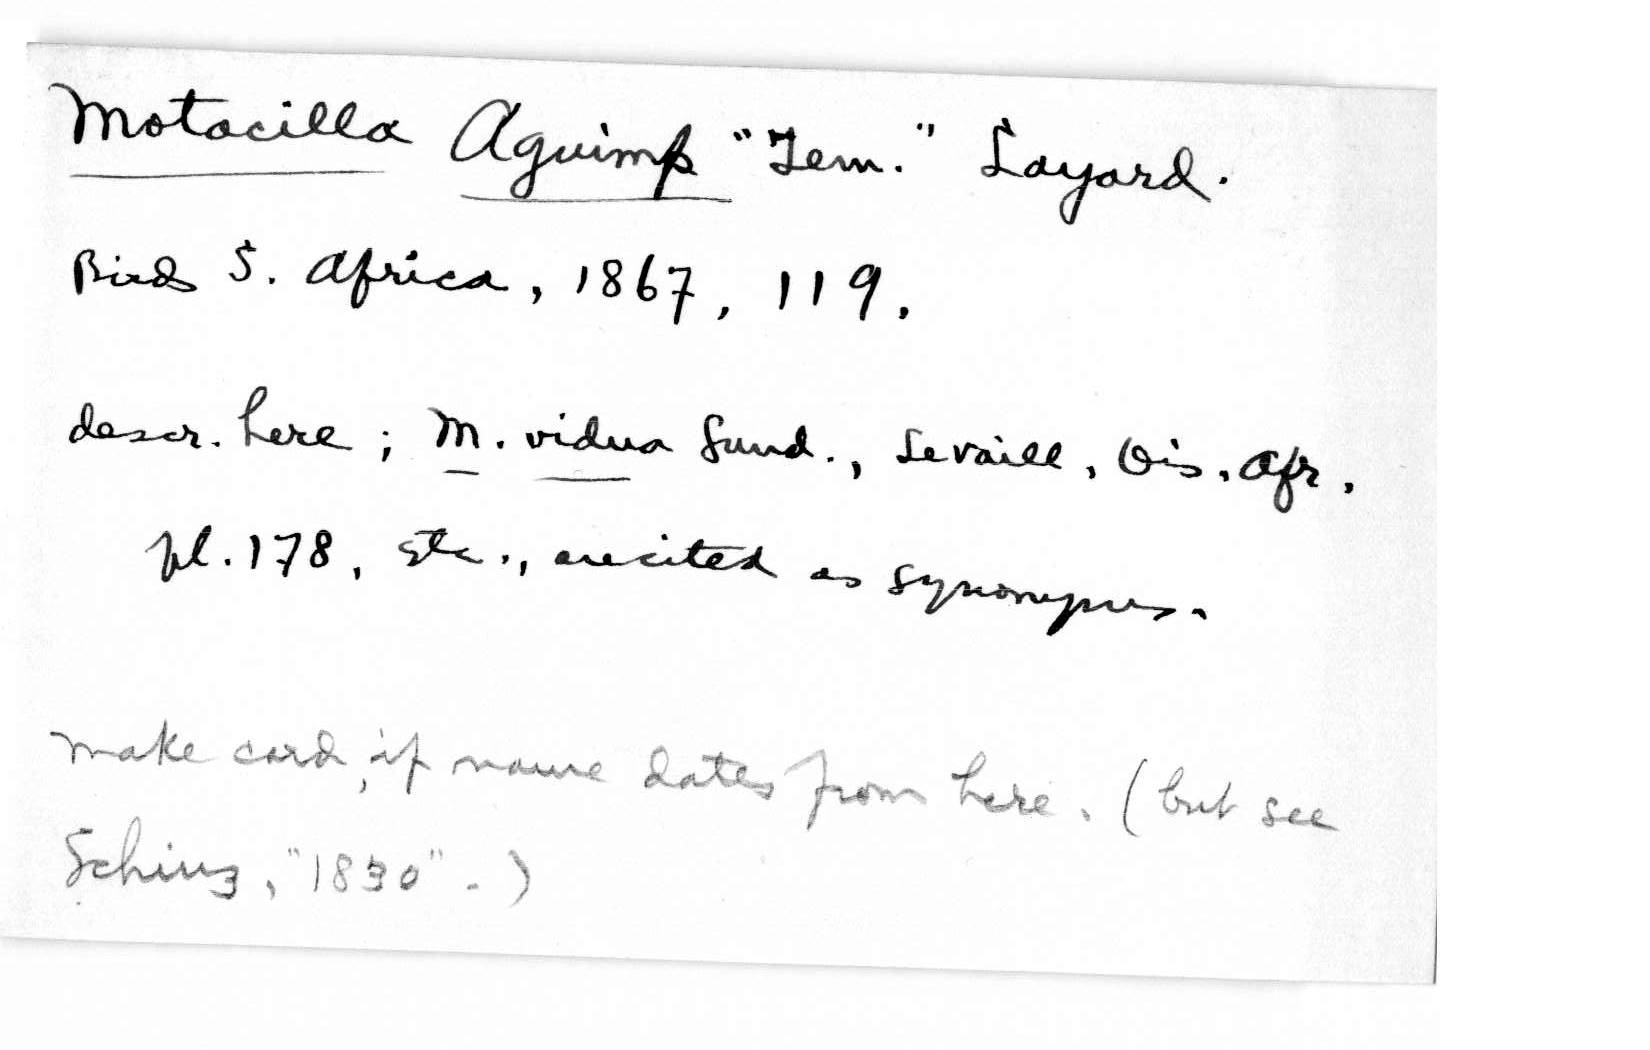 Motacilla Aguimp "Tem." Layard.
Birds S. Africa, 1867, 119.
descr. here; M. vidua Sund., Levaill, Ois. Afr.
pl. 178, etc., are cited as synonyms.
make card, if name dates from here. (but see
Schinz, "1830".)